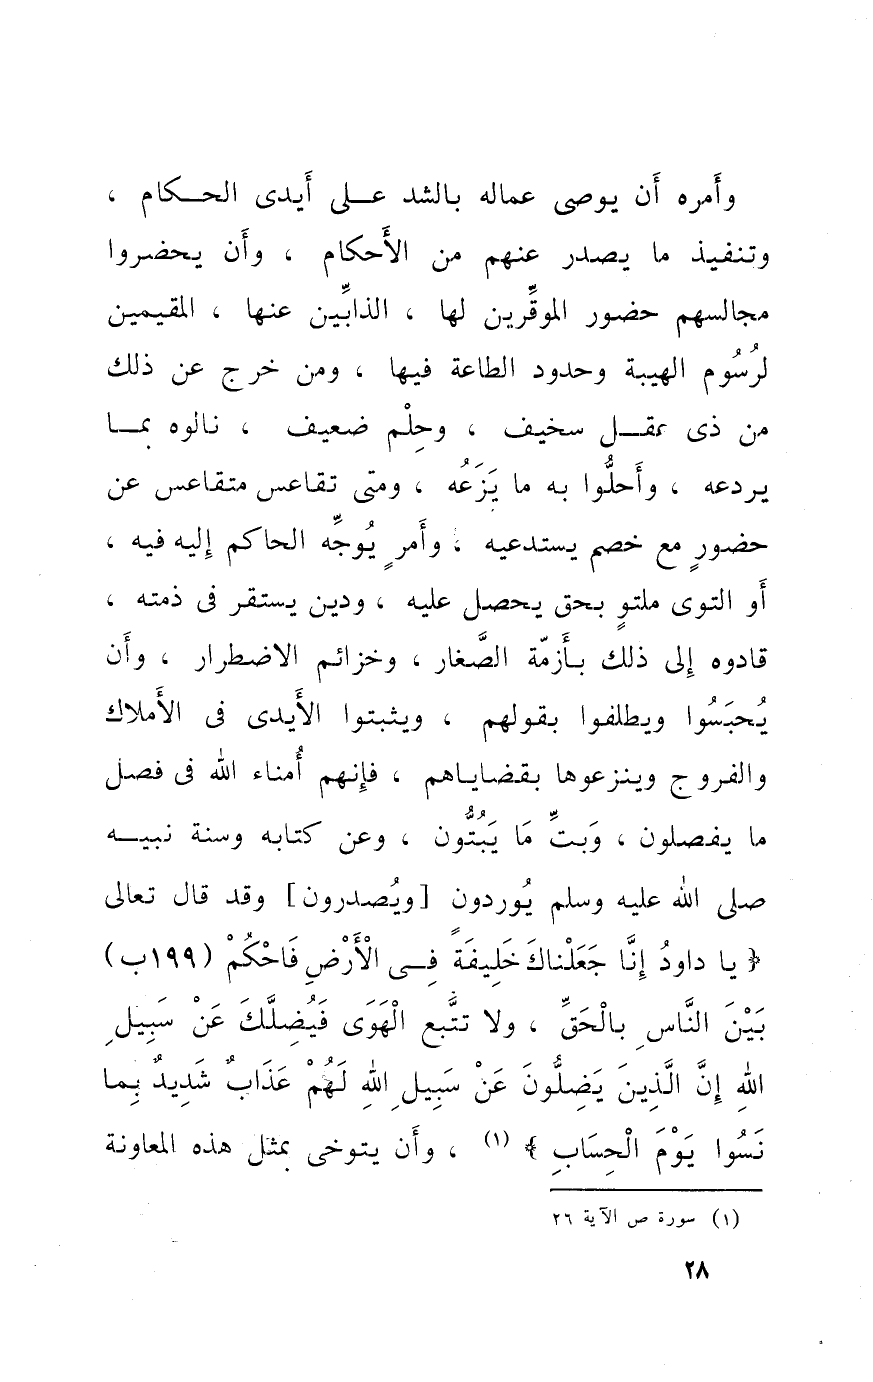 وأَمره أَن يوصى عماله بالشد على أَيدى الحكام ،
وتنفيذ ما يصدر عنهم من الأَحكام ، وأَن يحضروا
مجالسهم حضور الموقِّرين لها ، الذابِّين عنها ، المقيمين
لرُسُوم الهيبة وحدود الطاعة فيها ، ومن خرج عن ذلك
من ذى عقل سخيف ، وحِلْم ضعيف ، نالوه بما
يردعه ، وأَحلُّوا به ما يَزَعُه ، ومتى تقاعس متقاعس عن
حضورٍ مع خصم يستدعيه ، وأَمرٍ يُوجِّه الحاكم إليه فيه ،
أَو التوى ملتوٍ بحق يحصل عليه ، ودين يستقر فى ذمته ،
قادوه إلى ذلك بأَزمّة الصَّغار ، وخزائم الاضطرار ، وأَن
يُحبَسُوا ويطلفوا بقولهم ، ويثبتوا الأَيدى فى الأَملاك
والفروج وينزعوها بقضاياهم ، فإنهم أُمناء الله فى فصل
ما يفصلون ، وَبتِّ مَا يَبُتُّون ، وعن كتابه وسنة نبيه
صلى الله عليه وسلم يُوردون [ويُصدرون] وقد قال تعالى
﴿ يا داودُ إِنَّا جَعَلْناكَ خَلِيفَةً فِى الْأَرْضِ فَاحْكُمْ (١٩٩ب)
بَيْنَ النَّاسِ بِالْحَقِّ ، ولا تتَّبع الْهَوَى فَيُضِلَّكَ عَنْ سَبِيلِ
اللهِ إِنَّ الَّذِينَ يَضِلُّونَ عَنْ سَبِيلِ اللهِ لَهُمْ عَذَابٌ شَدِيدٌ بِما
نَسُوا يَوْمَ الْحِسَابِ ﴾ (١) ، وأَن يتوخى بمثل هذه المعاونة
(١) سورة ص الآية ٢٦
٢٨